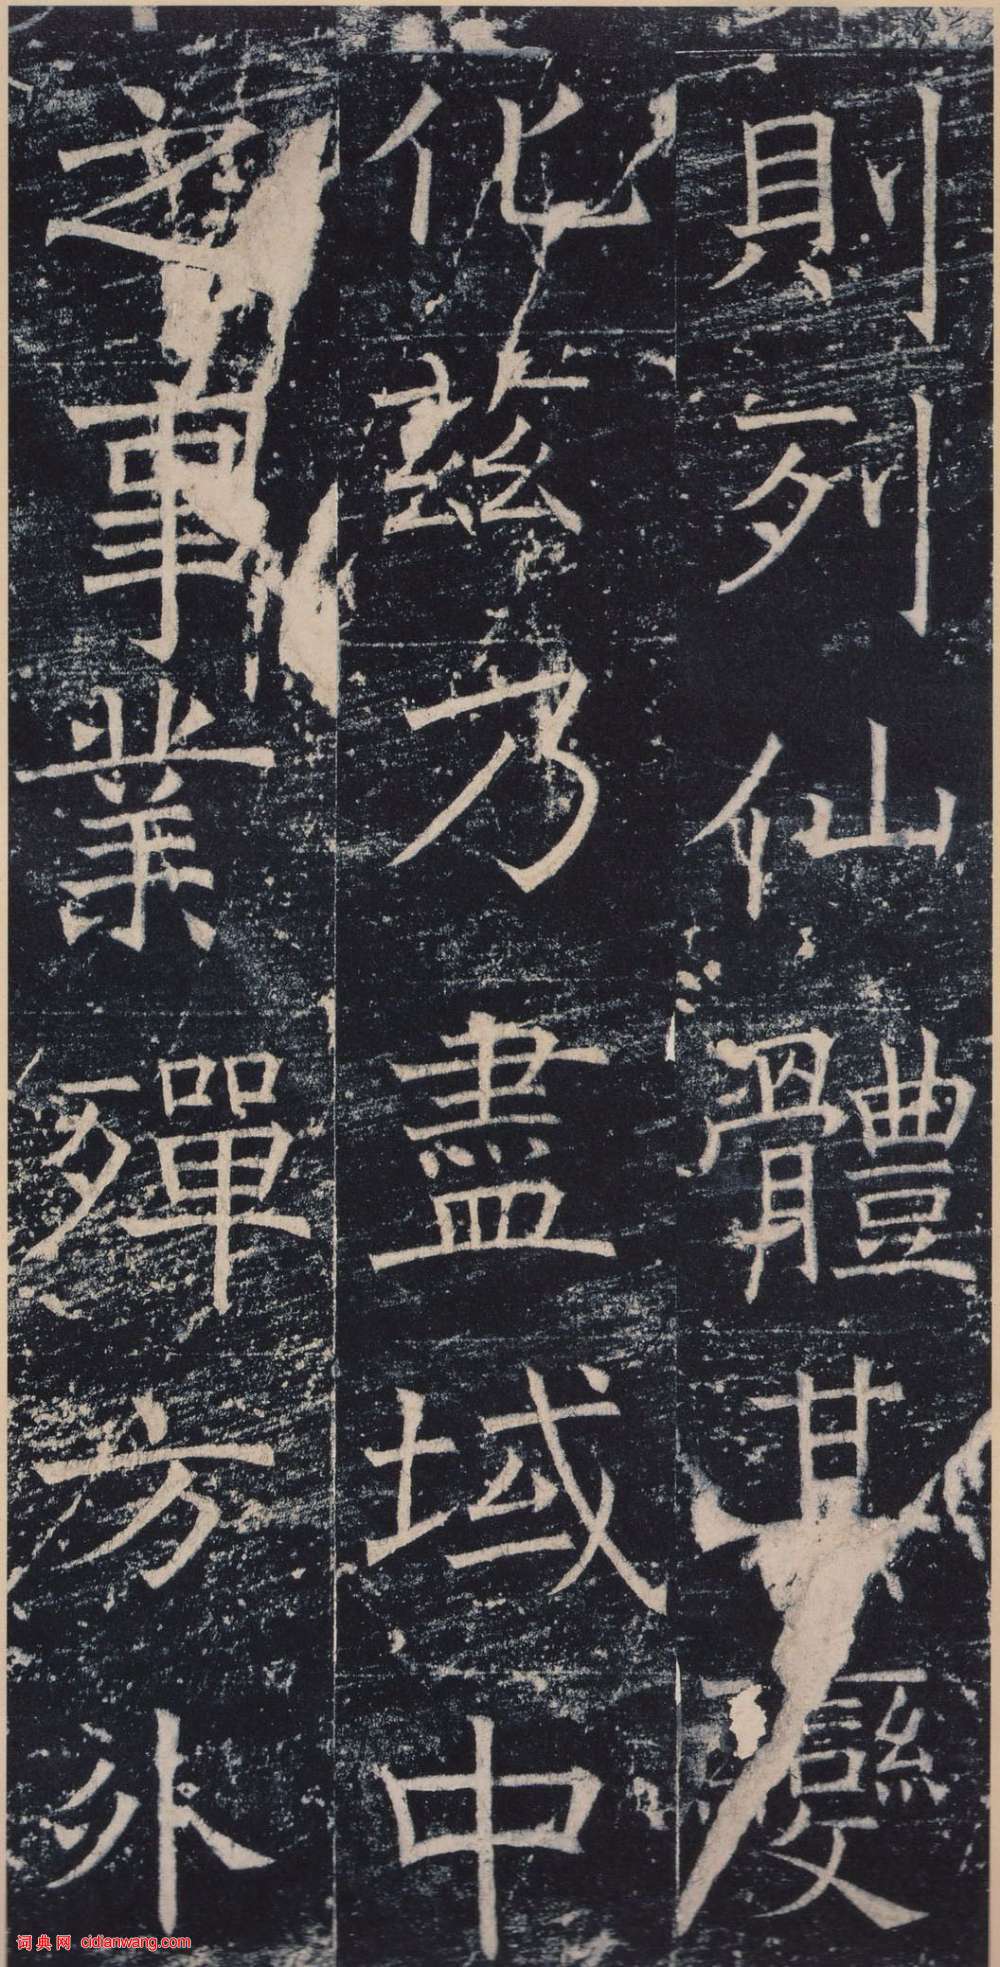 則列仙體其變
化茲乃盡域中
之事業殫方外
词典网 cidianwang.com